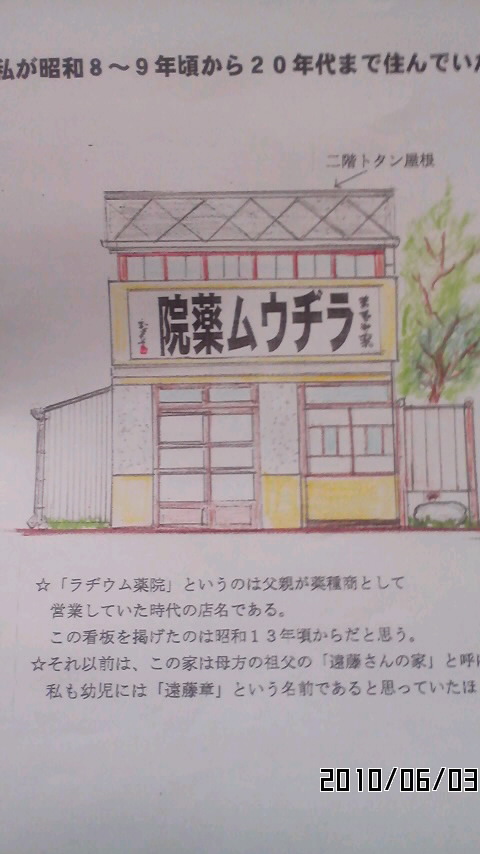 私が昭和８～９年頃から２０年代まで住んでい
二階トタン屋根
院薬ムウヂラ
☆「ラヂウム薬院」というのは父親が薬種商として
営業していた時代の店名である。
この看板を掲げたのは昭和１３年頃からだと思う。
☆それ以前は、この家は母方の祖父の「遠藤さんの家」と呼
私も幼児には「遠藤章」という名前であると思っていたほ
2010/06/03